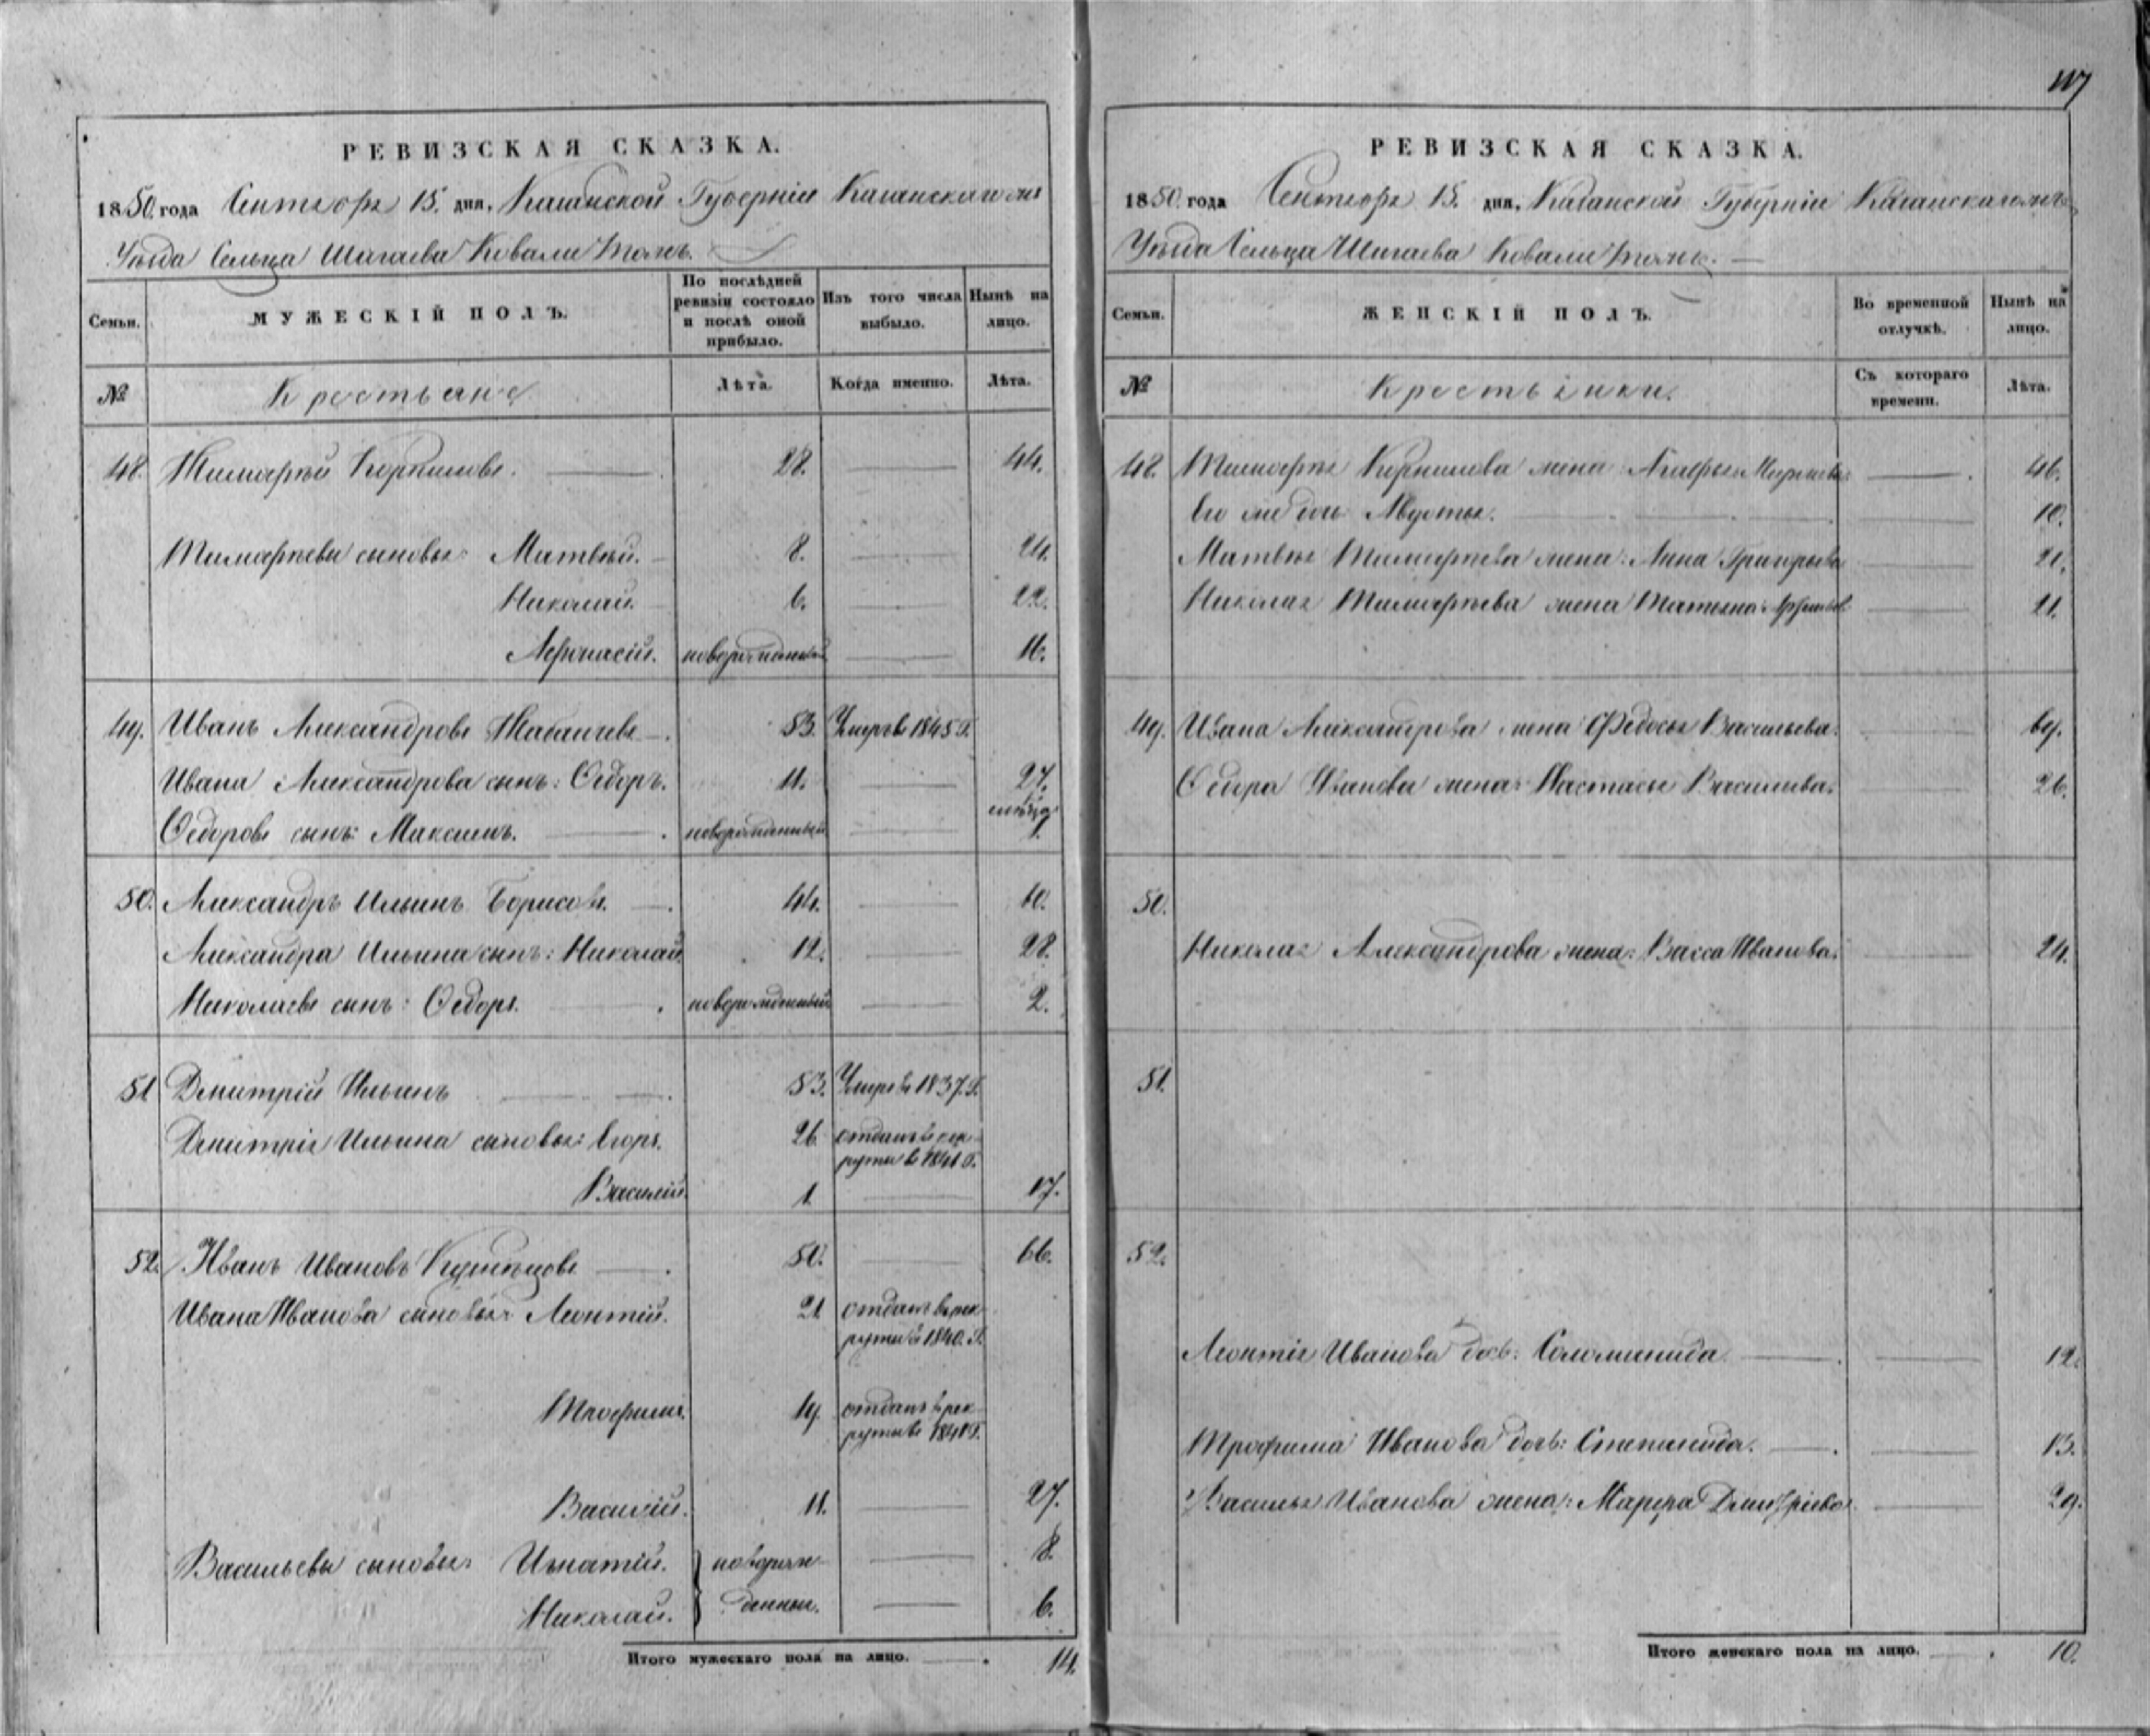 117
РЕВИЗСКАЯ СКАЗКА.
1850. года Сентября 15. дня, Казанской Губерніи Казанскаго
Уѣзда Сельца Шигаева Ковали тожъ.
Семьи.
МУЖЕСКІЙ ПОЛЪ.
По послѣдней ревизіи состояло и послѣ оной прибыло.
Изъ того числа выбыло.
Нынѣ на лицо.
№
Крестьяне
Лѣта.
Когда именно.
Лѣта.
48. Тимофѣй Корниловъ. 28. 44.
Тимофѣевы сыновья: Матвѣй. 8. 24.
Николай. 6. 22.
Афонасій. новорожденный 16.
49. Иванъ Александровъ 53. Умеръ въ 1845 Г.
Ивана Александрова сынъ: Ѳедоръ. 11. 27.
мѣсяца
Ѳедоровъ сынъ: Максимъ. новорожденный 1.
50. Александръ Ильинъ Борисовъ. 44. 60.
Александра Ильина сынъ: Николай. 12. 28.
Николаевъ сынъ: Ѳедоръ. новорожденный 2.
51 Дмитрій Ильинъ 53. Умеръ въ 1837. Г.
Дмитрія Ильина сыновья: Егоръ. 26 отданъ въ рек-
руты въ 1841 Г.
Василій. 1. 17.
52. Иванъ Ивановъ Кузнецовъ 50. 66.
Ивана Иванова сыновья: Леонтій. 21 отданъ въ рек-
руты въ 1840. Г.
Трофимъ. 19. отданъ въ рек-
руты въ 1841 Г.
Василій. 11. 27.
Васильевы сыновья: Игнатій. новорож- 8.
Николай. денныи. 6.
Итого мужескаго пола на лицо. 14.
РЕВИЗСКАЯ СКАЗКА.
1850. года Сентября 15. дня, Казанской Губерніи Казанскаго
Уѣзда Сельца Шигаева Ковали тожъ.
Семьи.
ЖЕНСКІЙ ПОЛЪ.
Во временной отлучкѣ.
Нынѣ на лицо.
№
Крестьянки.
Съ котораго времени.
Лѣта.
48. Тимофѣя Корнилова жена: Агафья 46.
Его же дочь Авдотья. 10.
Матвѣя Тимофѣева жена: Анна Григорьева 21.
Николая Тимофѣева жена Татьяна 21.
49. Ивана Александрова жена Ѳедосья Васильева. 69.
Ѳедора Иванова жена: Настасья Васильева. 26.
50.
Николая Александрова жена: Васса Иванова. 24.
51.
52.
Леонтія Иванова дочь: Соломинида 12.
Трофима Иванова дочь: Степанида. 13.
Василья Иванова жена: Марфа Дмитріева. 29.
Итого женскаго пола на лицо. 10.